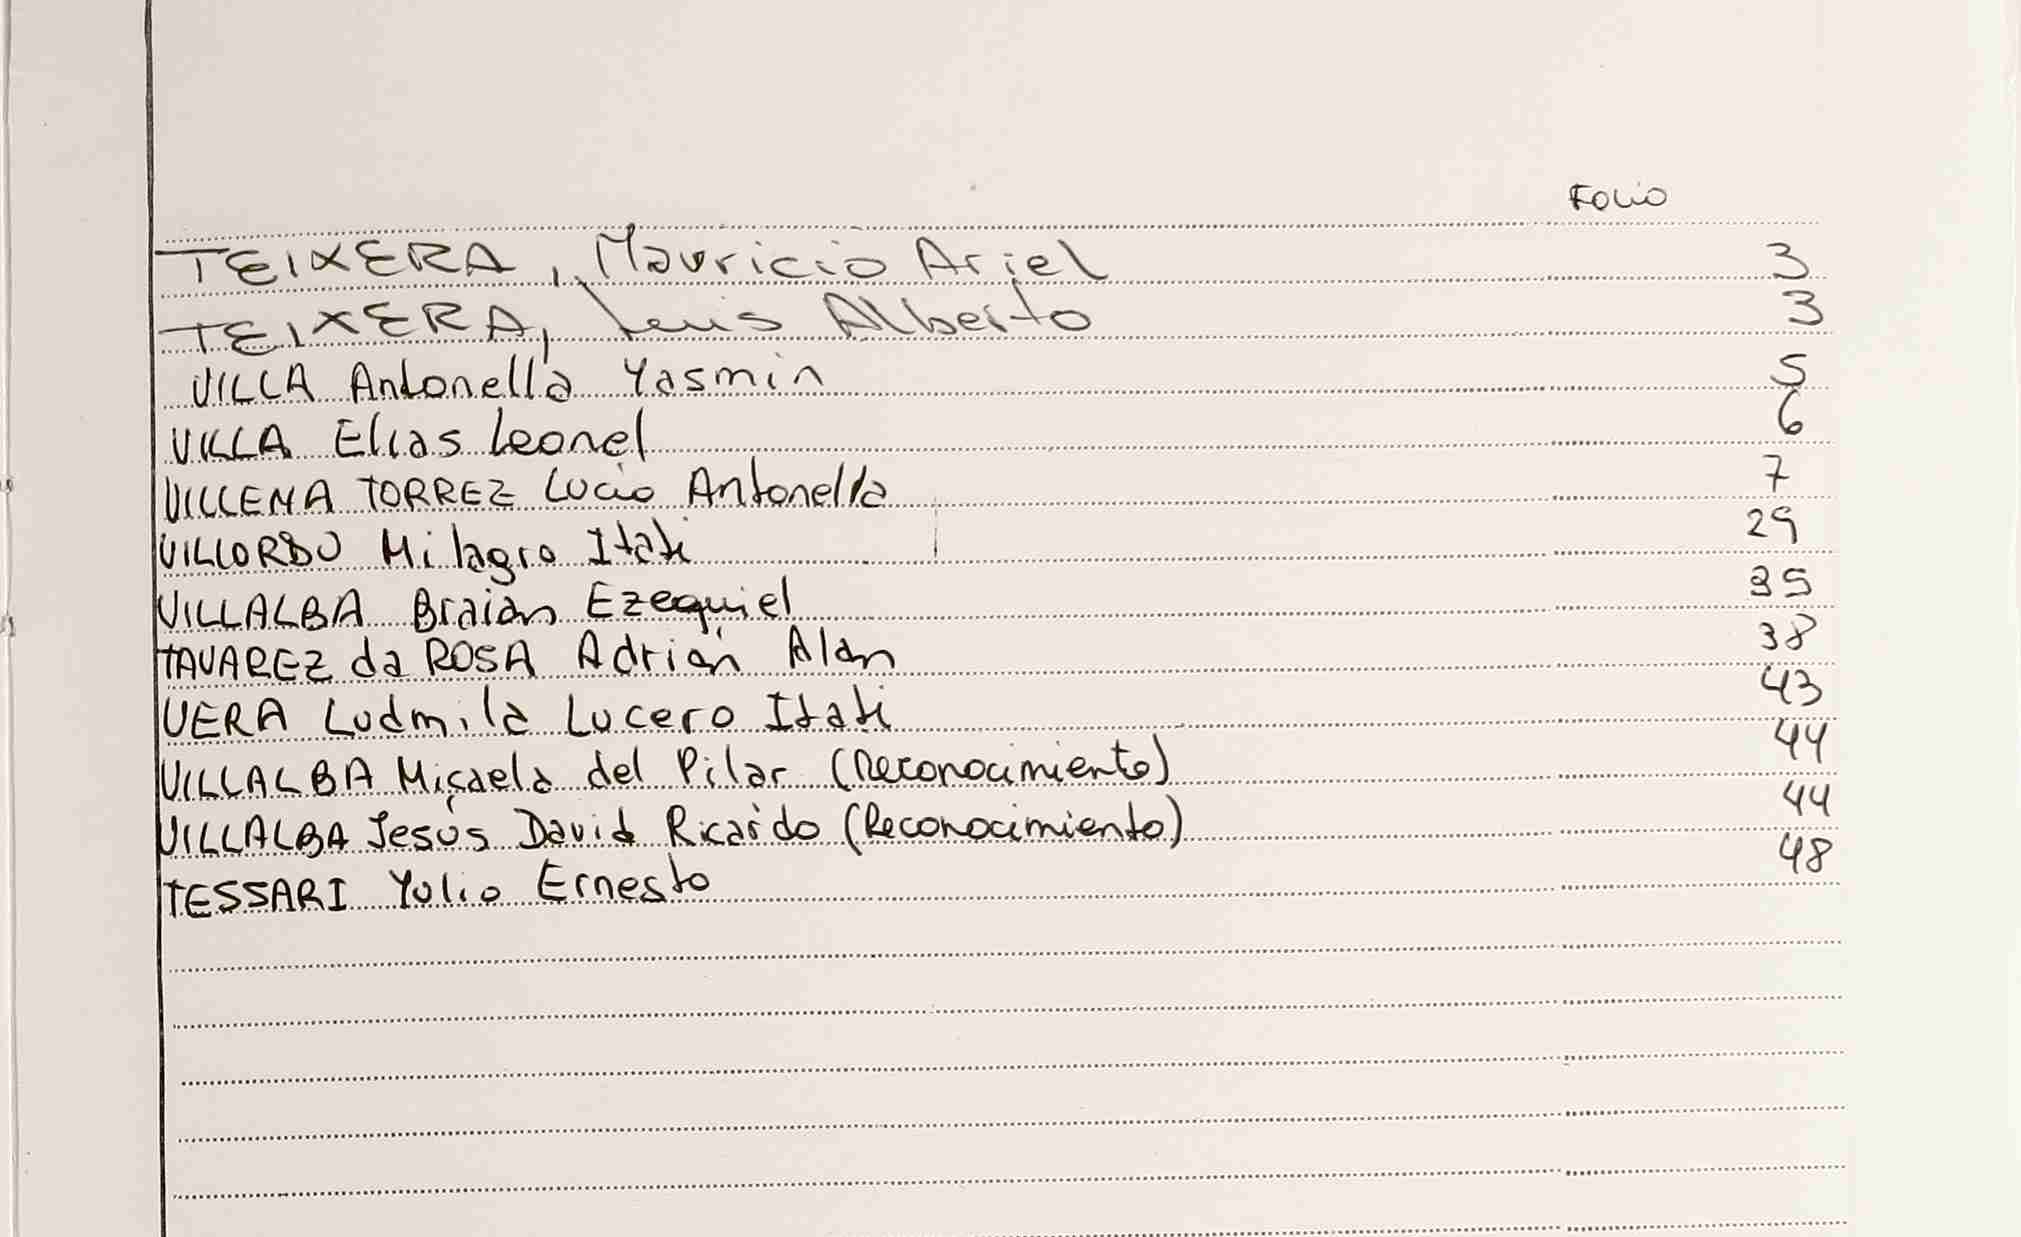 Folio
TEIXERA, Mauricio Ariel 3
TEIXERA, Luis Alberto 3
VILLA Antonella Yasmin 5
VILLA Elias Leonel 6
VILLENA TORREZ Lucio Antonella 7
VILLORDO Milagro Itati 29
VILLALBA Braian Ezequiel 35
TAVAREZ da ROSA Adrián Alan 38
VERA Ludmila Lucero Itati 43
VILLALBA Micaela del Pilar (Reconocimiento) 44
VILLALBA Jesús David Ricardo (Reconocimiento) 44
TESSARI Yulio Ernesto 48